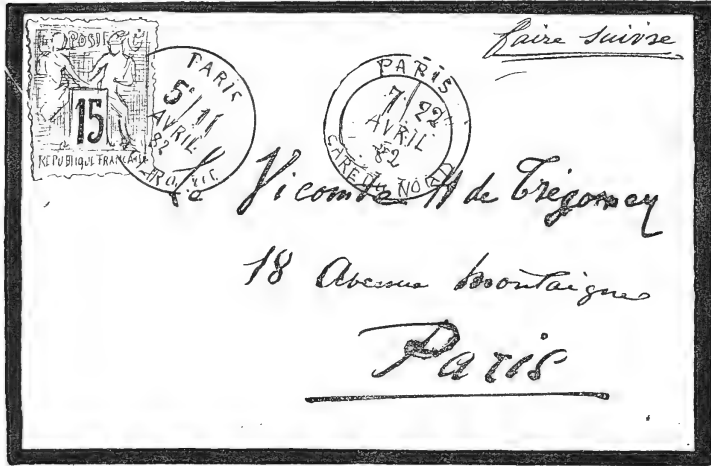 faire suivre
POSTES
15
REPUBLIQUE FRANÇAISE
PARIS
5e 11
AVRIL
82
PARIS
7e 22
AVRIL
82
GARE DU NORD
le Vicomte H de Trégomey
18 Avenue Montaigne
Paris